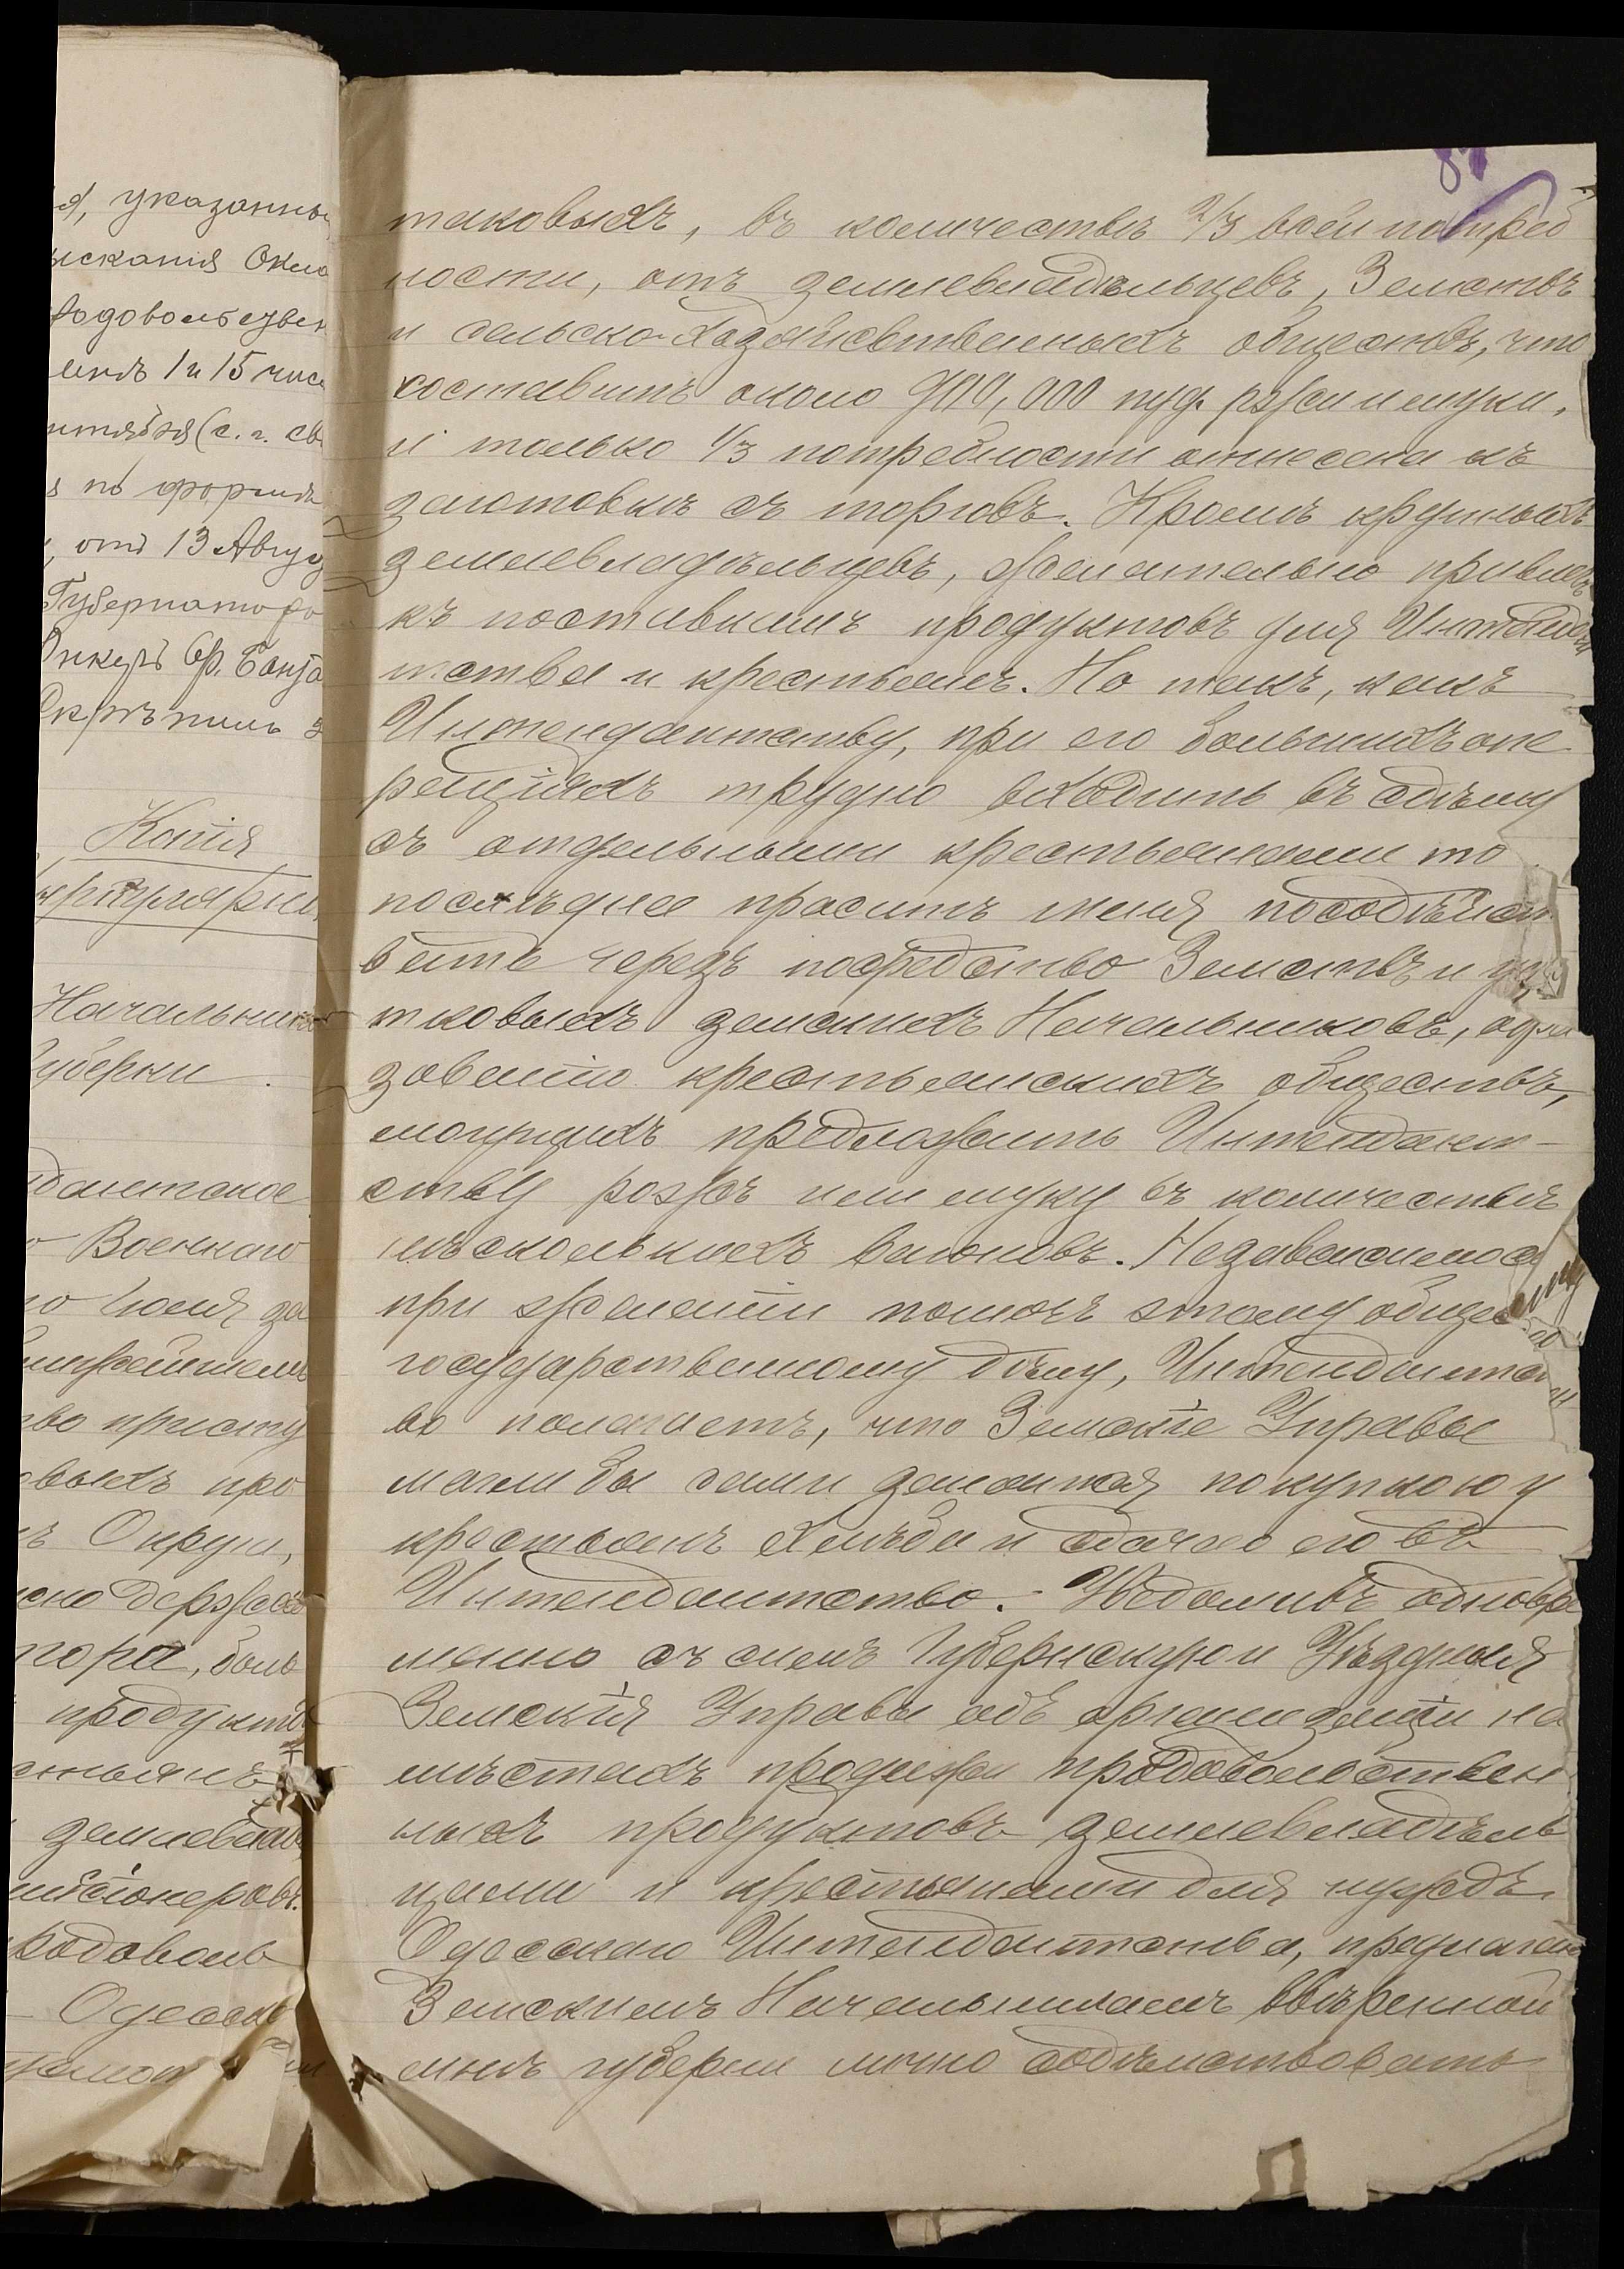 я, указанны
ысканія Окла
родовольствен
ленъ 1 и 15 чис
нтября (с. г. св
я по формѣ
, отъ 13 Авгу
Губернатор
Скрѣпилъ
Копія
Циркулярно.
Начальник
Губерніи.
Военнаго
Іюля за
во присту
выхъ про
ъ Округа,
держав
тора, боль
продукт
землевлад
миссіонеровъ.
родоволь
Одесск
таковыхъ, въ количествѣ 2/3 всей потреб
ности, отъ землевладѣльцевъ, Земствъ
и сельско-хозяйственныхъ обществъ, что
составитъ около 900,000 пуд. ржи и муки,
и только 1/3 потребности отнесена къ
заготовкѣ съ торговъ. Кромѣ крупныхъ
землевладѣльцевъ, желательно привлечь
къ поставкамъ продуктовъ для Интенд
тства и крестьянъ. Но такъ, какъ
Интендантству, при его большихъ опе
раціяхъ трудно входить въ сдѣлку
съ отдельными крестьянами то
послѣднее проситъ меня посодѣйст
вать черезъ посредство Земствъ и уч
тковыхъ земскихъ Начальниковъ, обра
зованію крестьянскихъ обществъ,
могущихъ предложить Интендант-
ству рожь или муку въ количествѣ
нѣсколькихъ вагоновъ. Независимо с
при желаніи помочь этому обще
государственному дѣлу, Интендантст
во полагаетъ, что Земскіе Управы
могли бы сами заняться покупкою у
крестьянъ хлѣба и сдачею его въ
Интендантство. Увѣдомивъ одновре
менно съ симъ Губернскую и Уѣздныя
Земскія Управы объ организаціи на
мѣстахъ продажи продовольствен
ныхъ продуктовъ землевладѣль
цами и крестьянами для нуждъ
Одесскаго Интендантства, предлагаю
Земскимъ Начальникамъ ввѣренной
мнѣ губерніи лично содѣйствовать